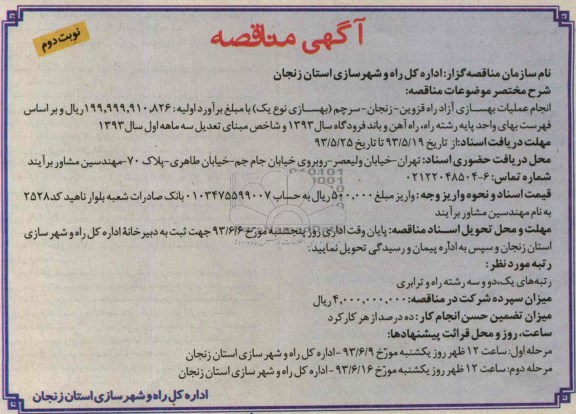 نوبت دوم
آگهی مناقصه
نام سازمان مناقصه گزار: اداره کل راه و شهرسازی استان زنجان
شرح مختصر موضوعات مناقصه:
انجام عملیات بهسازی آزاد راه قزوین-زنجان-سرچم (بهسازی نوع یک) با مبلغ برآورد اولیه: ۱۹۹,۹۹۹,۹۱۰,۸۲۶ ریال و بر اساس
فهرست بهای واحد پایه رشته راه، راه آهن و باند فرودگاه سال ۱۳۹۳ و شاخص مبنای تعدیل سه ماهه اول سال ۱۳۹۳
مهلت دریافت اسناد: از تاریخ ۹۳/۵/۱۹ تا تاریخ ۹۳/۵/۲۵
محل دریافت حضوری اسناد: تهران-خیابان ولیعصر-روبروی خیابان جام جم-خیابان طاهری-پلاک ۷۰-مهندسین مشاور برآیند
شماره تماس: ۶-۰۲۱۲۲۰۴۸۵۰۴
قیمت اسناد و نحوه واریز وجه: واریز مبلغ ۵۰۰,۰۰۰ ریال به حساب ۰۱۰۳۴۷۵۵۹۹۰۰۷ بانک صادرات شعبه بلوار ناهید کد ۲۵۲۸
به نام مهندسین مشاور برآیند
مهلت و محل تحویل اسناد مناقصه: پایان وقت اداری روز پنجشنبه مورخ ۹۳/۶/۶ جهت ثبت به دبیرخانهٔ اداره کل راه و شهر سازی
استان زنجان و سپس به اداره پیمان و رسیدگی تحویل نمایید.
رتبه مورد نظر:
رتبه‌های یک، دو و سه رشته راه و ترابری
میزان سپرده شرکت در مناقصه: ۴,۰۰۰,۰۰۰,۰۰۰ ریال
میزان تضمین حسن انجام کار: ده درصد از هر کارکرد
ساعت، روز و محل قرائت پیشنهادها:
مرحله اول: ساعت ۱۲ ظهر روز یکشنبه مورخ ۹۳/۶/۹ -اداره کل راه و شهر سازی استان زنجان
مرحله دوم: ساعت ۱۲ ظهر روز یکشنبه مورخ ۹۳/۶/۱۶ -اداره کل راه و شهر سازی استان زنجان
اداره کل راه و شهرسازی استان زنجان